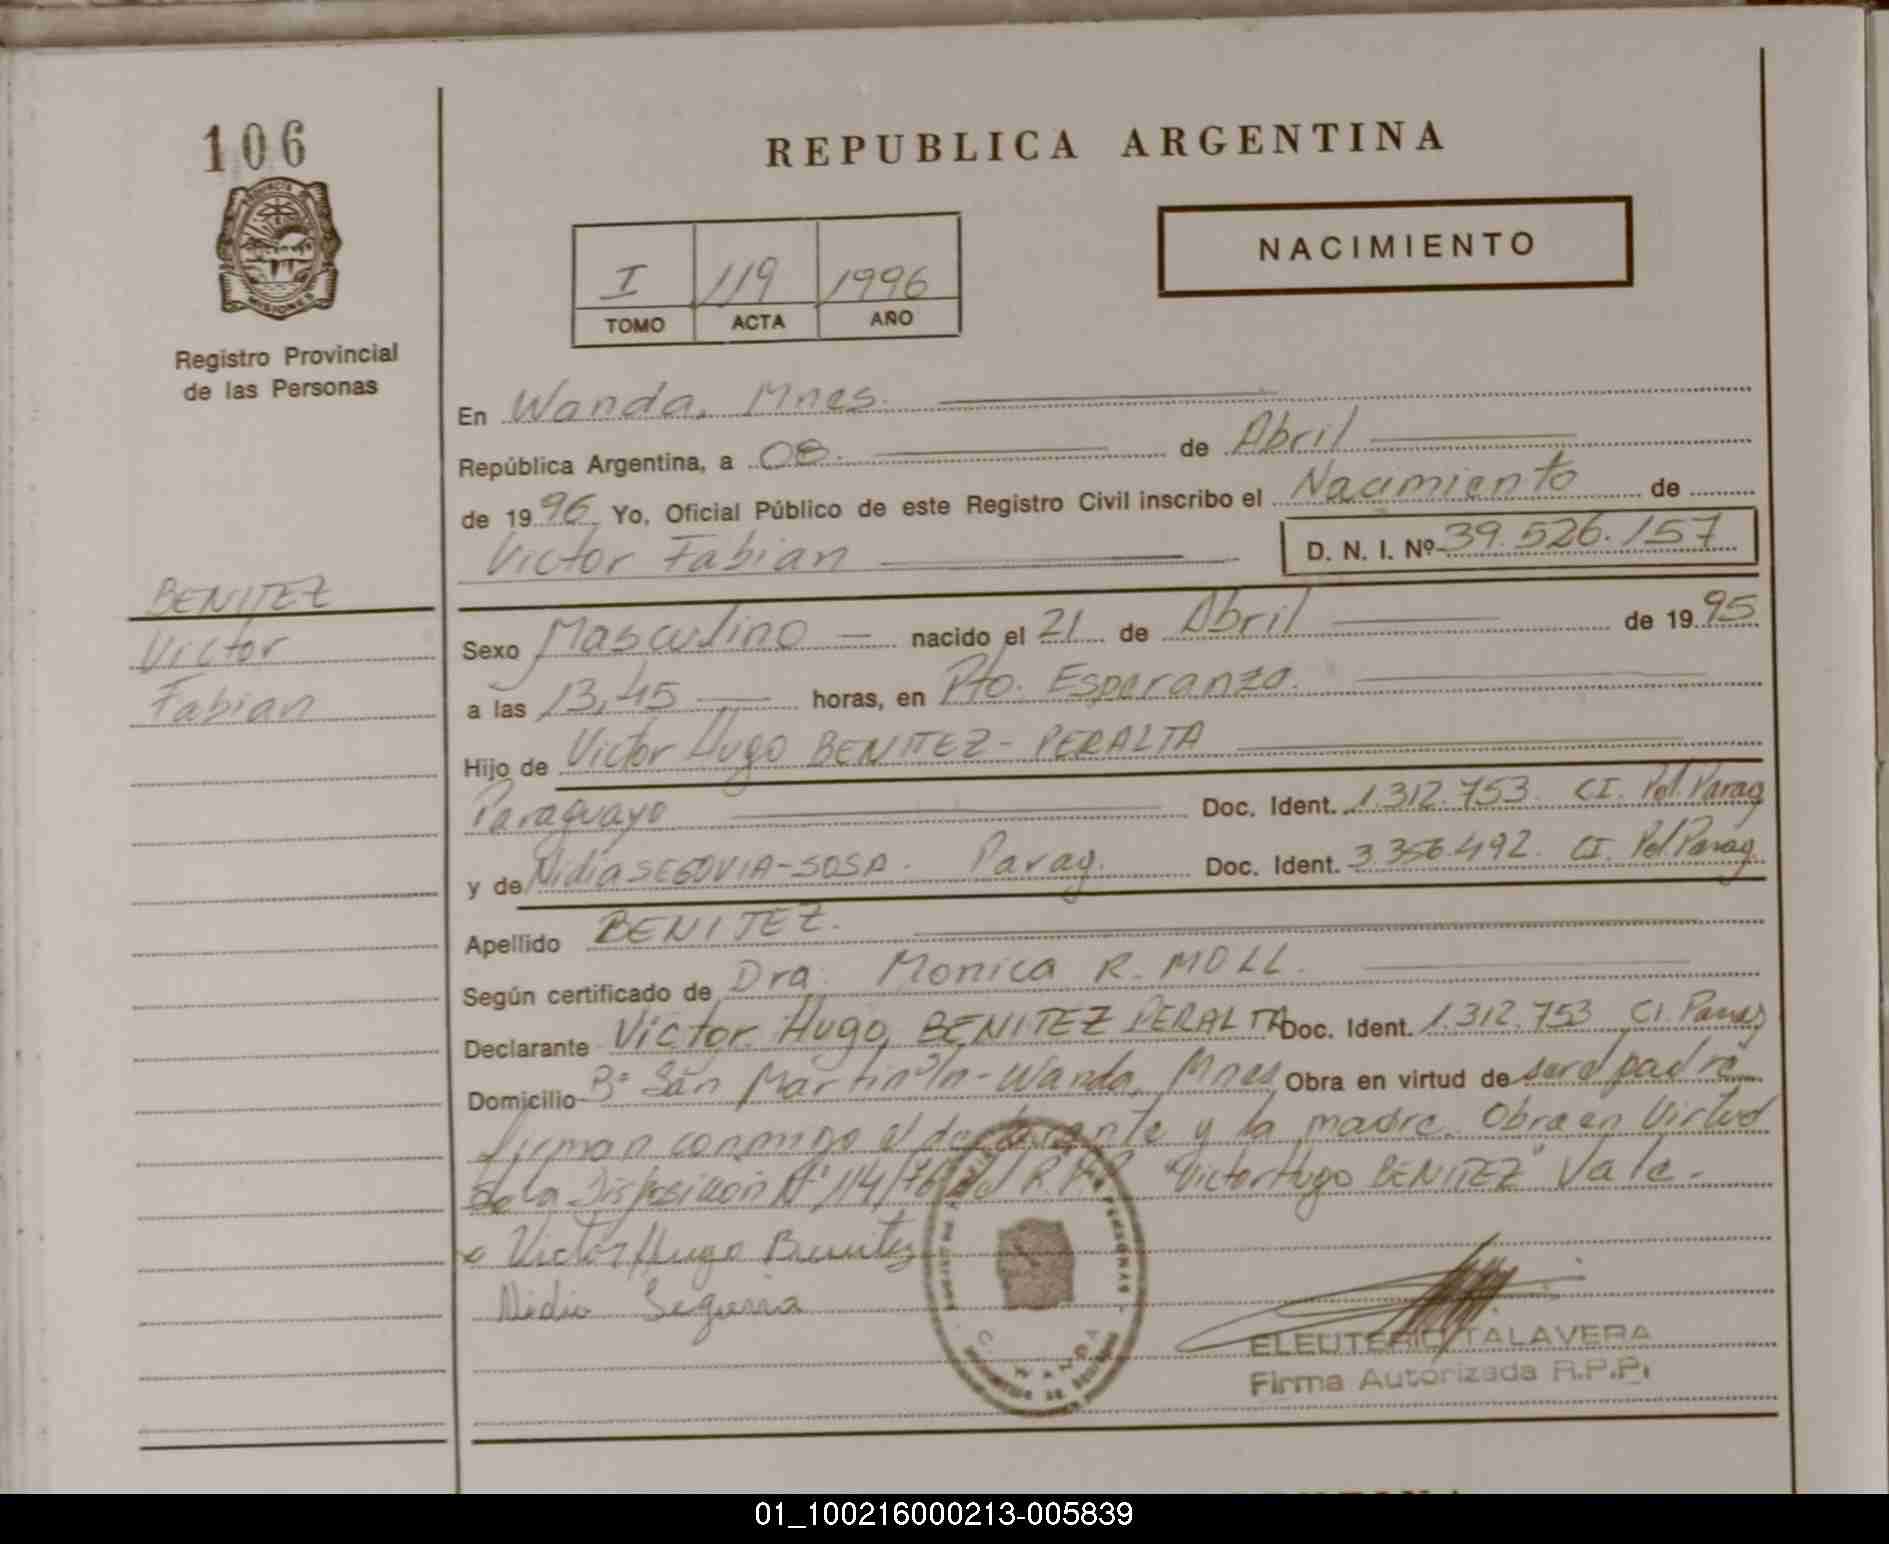 106
REPUBLICA ARGENTINA
NACIMIENTO
I 119 1996
TOMO ACTA AÑO
MISIONES
Registro Provincial
de las Personas
En Wanda, Mnes.
República Argentina, a 08. de Abril
de 1996 Yo, Oficial Público de este Registro Civil inscribo el Nacimiento de
Victor Fabian D. N. I. Nº 39.526.157
BENITEZ
Victor
Fabian
Sexo Masculino nacido el 21 de Abril de 1995
a las 13,45 horas, en Pto. Esperanza.
Hijo de Victor Hugo BENITEZ - PERALTA
Paraguayo Doc. Ident. 1.312.753. CI. Pol. Parag
y de Nidia SEGOVIA-SOSA. Parag. Doc. Ident. 3.356.492. CI. Pol Parag.
Apellido BENITEZ.
Según certificado de Dra. Monica R. MOLL.
Declarante Victor Hugo BENITEZ PERALTA Doc. Ident. 1.312.753 CI. Parag
Domicilio Bº San Martin s/n - Wanda, Mnes Obra en virtud de ser el padre
firman conmigo el declarante y la madre. Obra en Virtud
De la Disposición Nº 114/76 del R.P.P. "Victor Hugo BENITEZ" Vale.-
x Victor Hugo Benitez
Nidia Segovia
WANDA
ELEUTERIO TALAVERA
Firma Autorizada R.P.P.
01_100216000213-005839